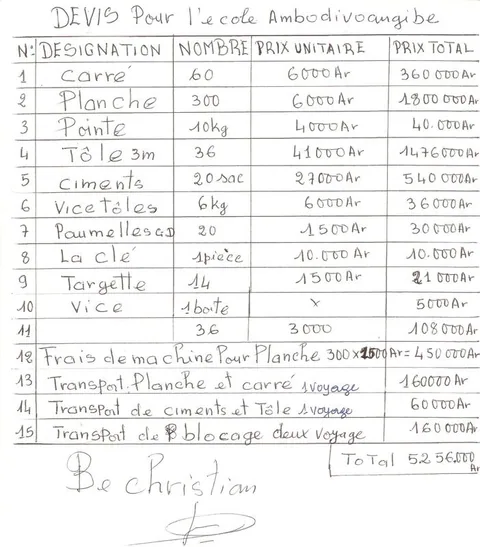 DEVIS Pour l'ecole Ambodivoangibe
N: DESIGNATION NOMBRE PRIX UNITAIRE PRIX TOTAL
1 Carré 60 6000Ar 360 000Ar
2 Planche 300 6000Ar 1800 000Ar
3 Pointe 10kg 4000Ar 40.000Ar
4 Tôle 3m 36 41000Ar 1476000Ar
5 ciments 20 sac 27000Ar 540 000Ar
6 Vice tôles 6kg 6000Ar 36000Ar
7 Paumelles 20 1500Ar 30000Ar
8 La clé 1pièce 10.000Ar 10.000Ar
9 Targette 14 1500Ar 21000Ar
10 Vice 1boite x 5000Ar
11 36 3000 108000Ar
12 Frais de machine Pour Planche 300x1500Ar=450000Ar
13 Transport.Planche et carré 1voyage 160000Ar
14 Transport de ciments et Tôle 1voyage 60000Ar
15 Transport de blocage deux voyage 160000Ar
ToTal 5256.000 Ar
Be christian